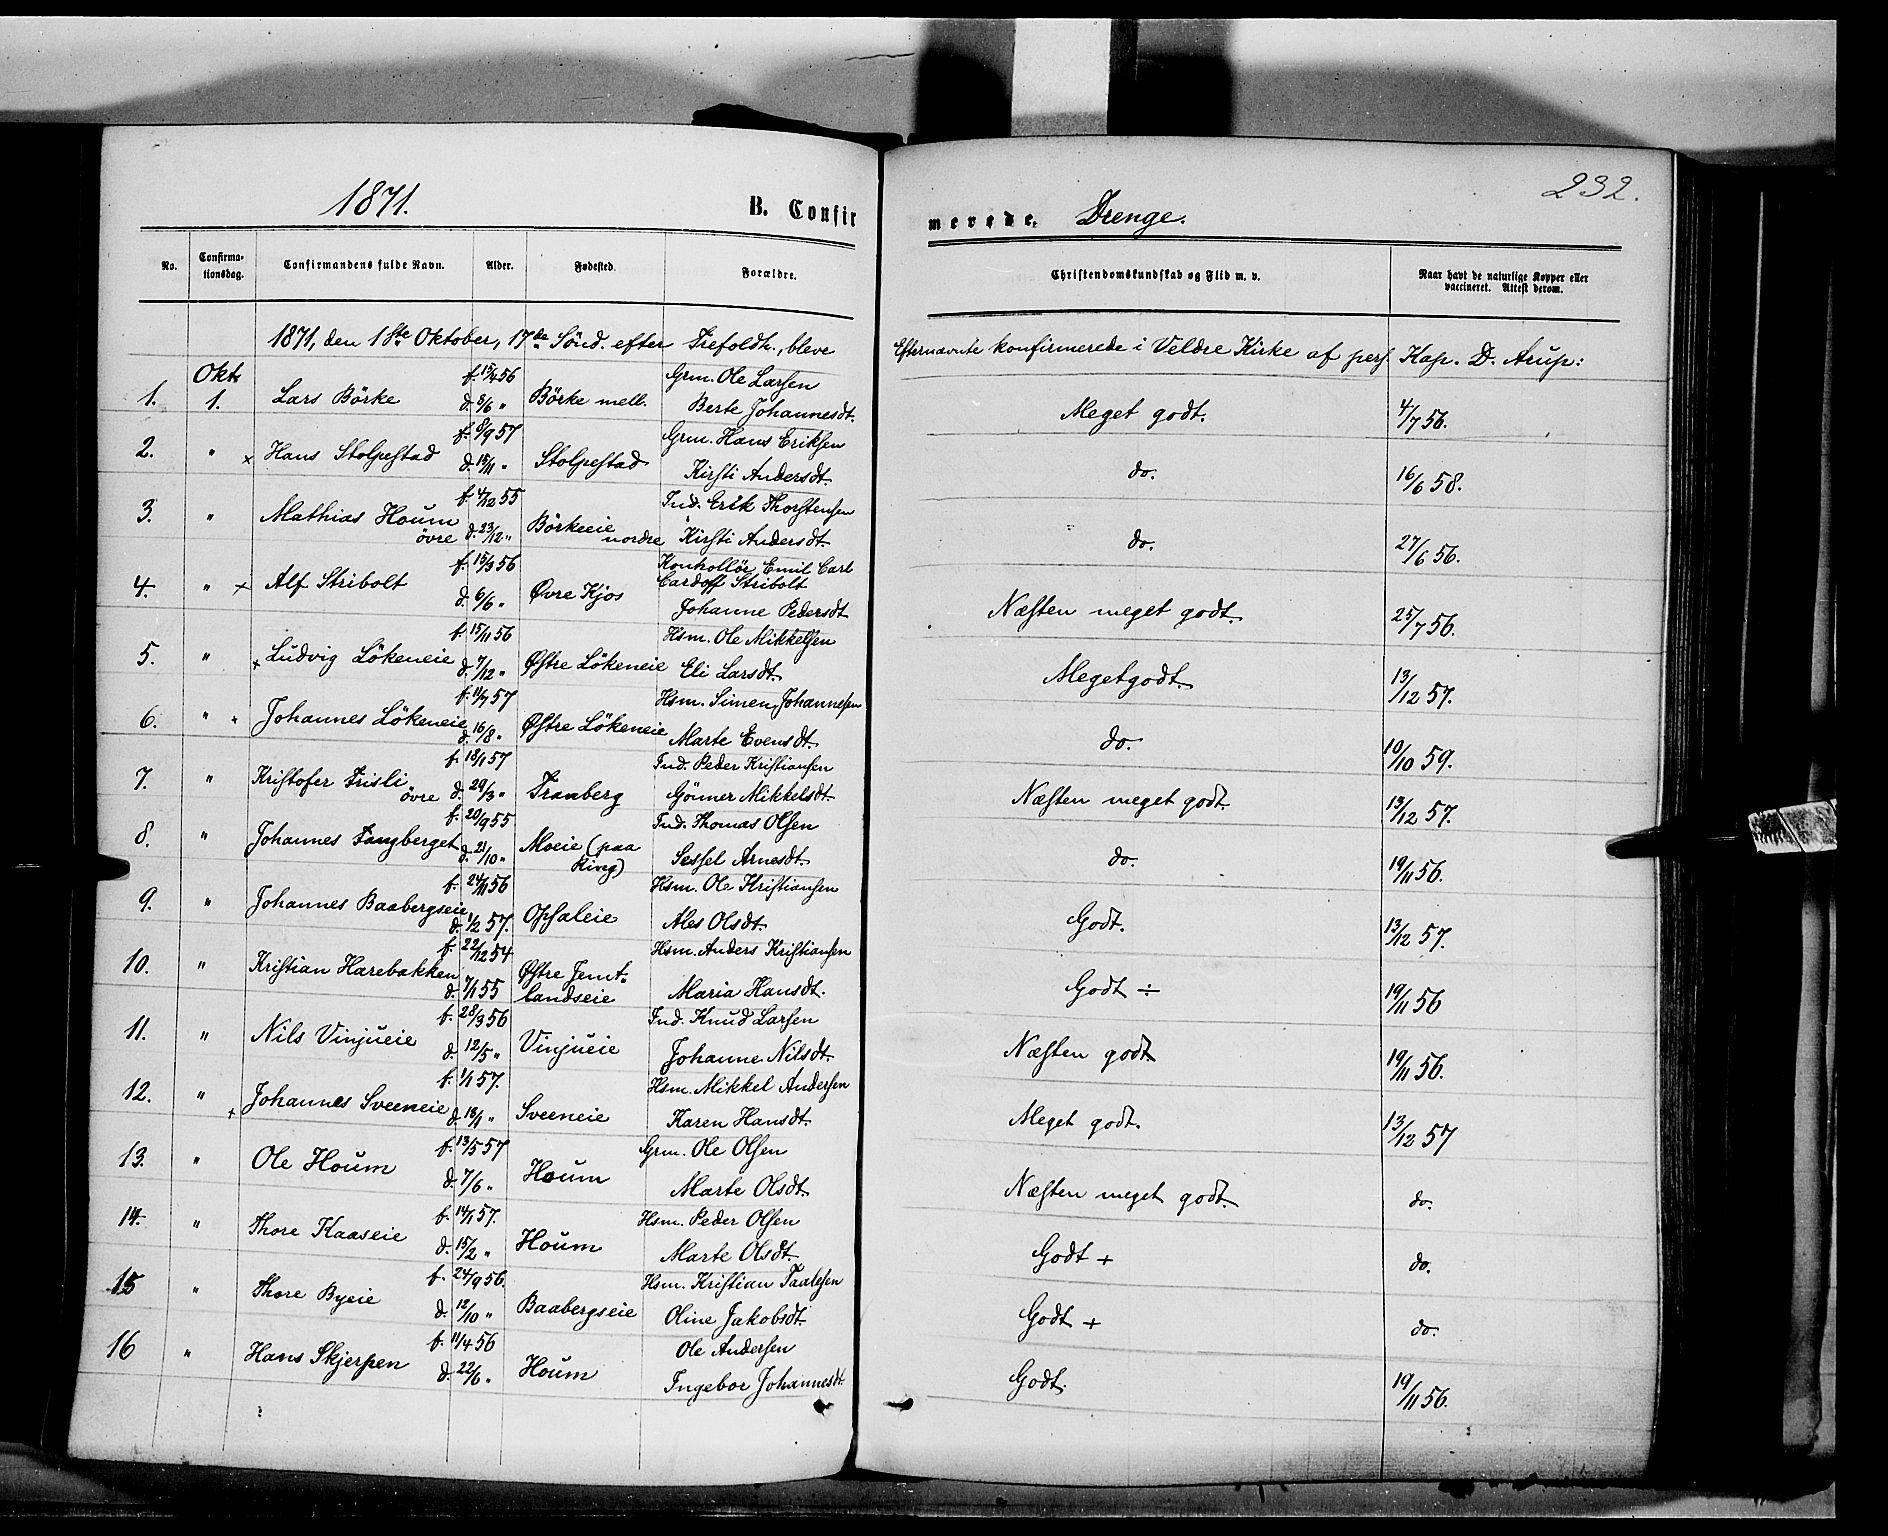 1871.
B. Confirmerede Drenge.
232.
No. Confirmationsdag. Confirmandens fulde Navn. Alder. Fødested. Forældre. Christendomskundskab og Flid m. v. Naar havt de naturlige Kopper eller vaccineret. Attest derom.
1871, den 1ste Oktober, 17de Sønd. efter Trefoldh., bleve Efternævnte konfirmerede i Veldre Kirke af pers. Kap. D. Arup:
Okt.
1. 1. Lars Börke f. 15/4 56 d. 8/6 " Börke mell. Grm. Ole Larsen
Berte Johannesdt. Meget godt. 4/7 56.
2. " × Hans Stolpestad f. 8/9 57 d. 15/11 " Stolpestad Grm. Hans Eriksen
Kirsti Andersdt. do. 16/6 58.
3. " Mathias Houm övre f. 4/12 55 d. 23/12 " Börkeeie nordre Ind. Erik Thorstensen
Kirsti Andersdt. do. 27/6 56.
4. " × Alf Stribolt f. 15/3 56 d. 6/6 " Øvre Kjos Kontrollör Emil Carl
Cardoff Stribolt
Johanne Pedersdt. Næsten meget godt. 25/7 56.
5. " × Ludvig Lökeneie f. 15/11 56 d. 7/12 " Østre Lökeneie Hsm. Ole Mikkelsen
Eli Larsdt. Meget godt. 13/12 57.
6. " " Johannes Lökeneie f. 11/7 57 d. 16/8 " Østre Lökeneie Hsm. Simen Johannesen
Marte Evensdt. do. 10/10 59.
7. " Kristofer Frisli övre f. 18/1 57 d. 29/3 " Tranberg Ind. Peder Kristiansen
Gönner Mikkelsdt. Næsten meget godt. 13/12 57.
8. " Johannes Tangberget f. 20/9 55 d. 21/10 " Moeie (paa Ring) Ind. Thomas Olsen
Sessel Arnesdt. do. 19/11 56.
9. " Johannes Baabergseie f. 24/11 56 d. 1/2 57. Opsaleie Hsm. Ole Kristiansen
Ales Olsdt. Godt. 13/12 57.
10. " Kristian Harebakken f. 22/12 54 d. 7/1 55 Østre Jemtlandseie Hsm. Anders Kristiansen
Maria Hansdt. Godt ÷ 19/11 56
11. " Nils Vinjueie f. 28/3 56 d. 12/5 " Vinjueie Ind. Knud Larsen
Johanne Nilsdt. Næsten godt 19/11 56.
12. " × Johannes Sveeneie f. 1/1 57. d. 18/1 " Sveeneie Hsm. Mikkel Andersen
Karen Hansdt. Meget godt. 13/12 57
13. " Ole Houm f. 13/5 57 d. 7/6 " Houm Grm. Ole Olsen
Marte Olsdt. Næsten meget godt. do.
14. " Thore Kaaseie f. 14/1 57. d. 15/2 " Houm Hsm. Peder Olsen
Marte Olsdt. Godt + do.
15 " Thore Byeie f. 24/9 56. d. 12/10 " Baabergseie Hsm. Kristian Taalesen
Oline Jakobsdt. Godt + do.
16 " Hans Skjerpen f. 11/4 56 d. 22/6 " Houm Ole Andersen
Ingebor Johannesdt. Godt. 19/11 56.